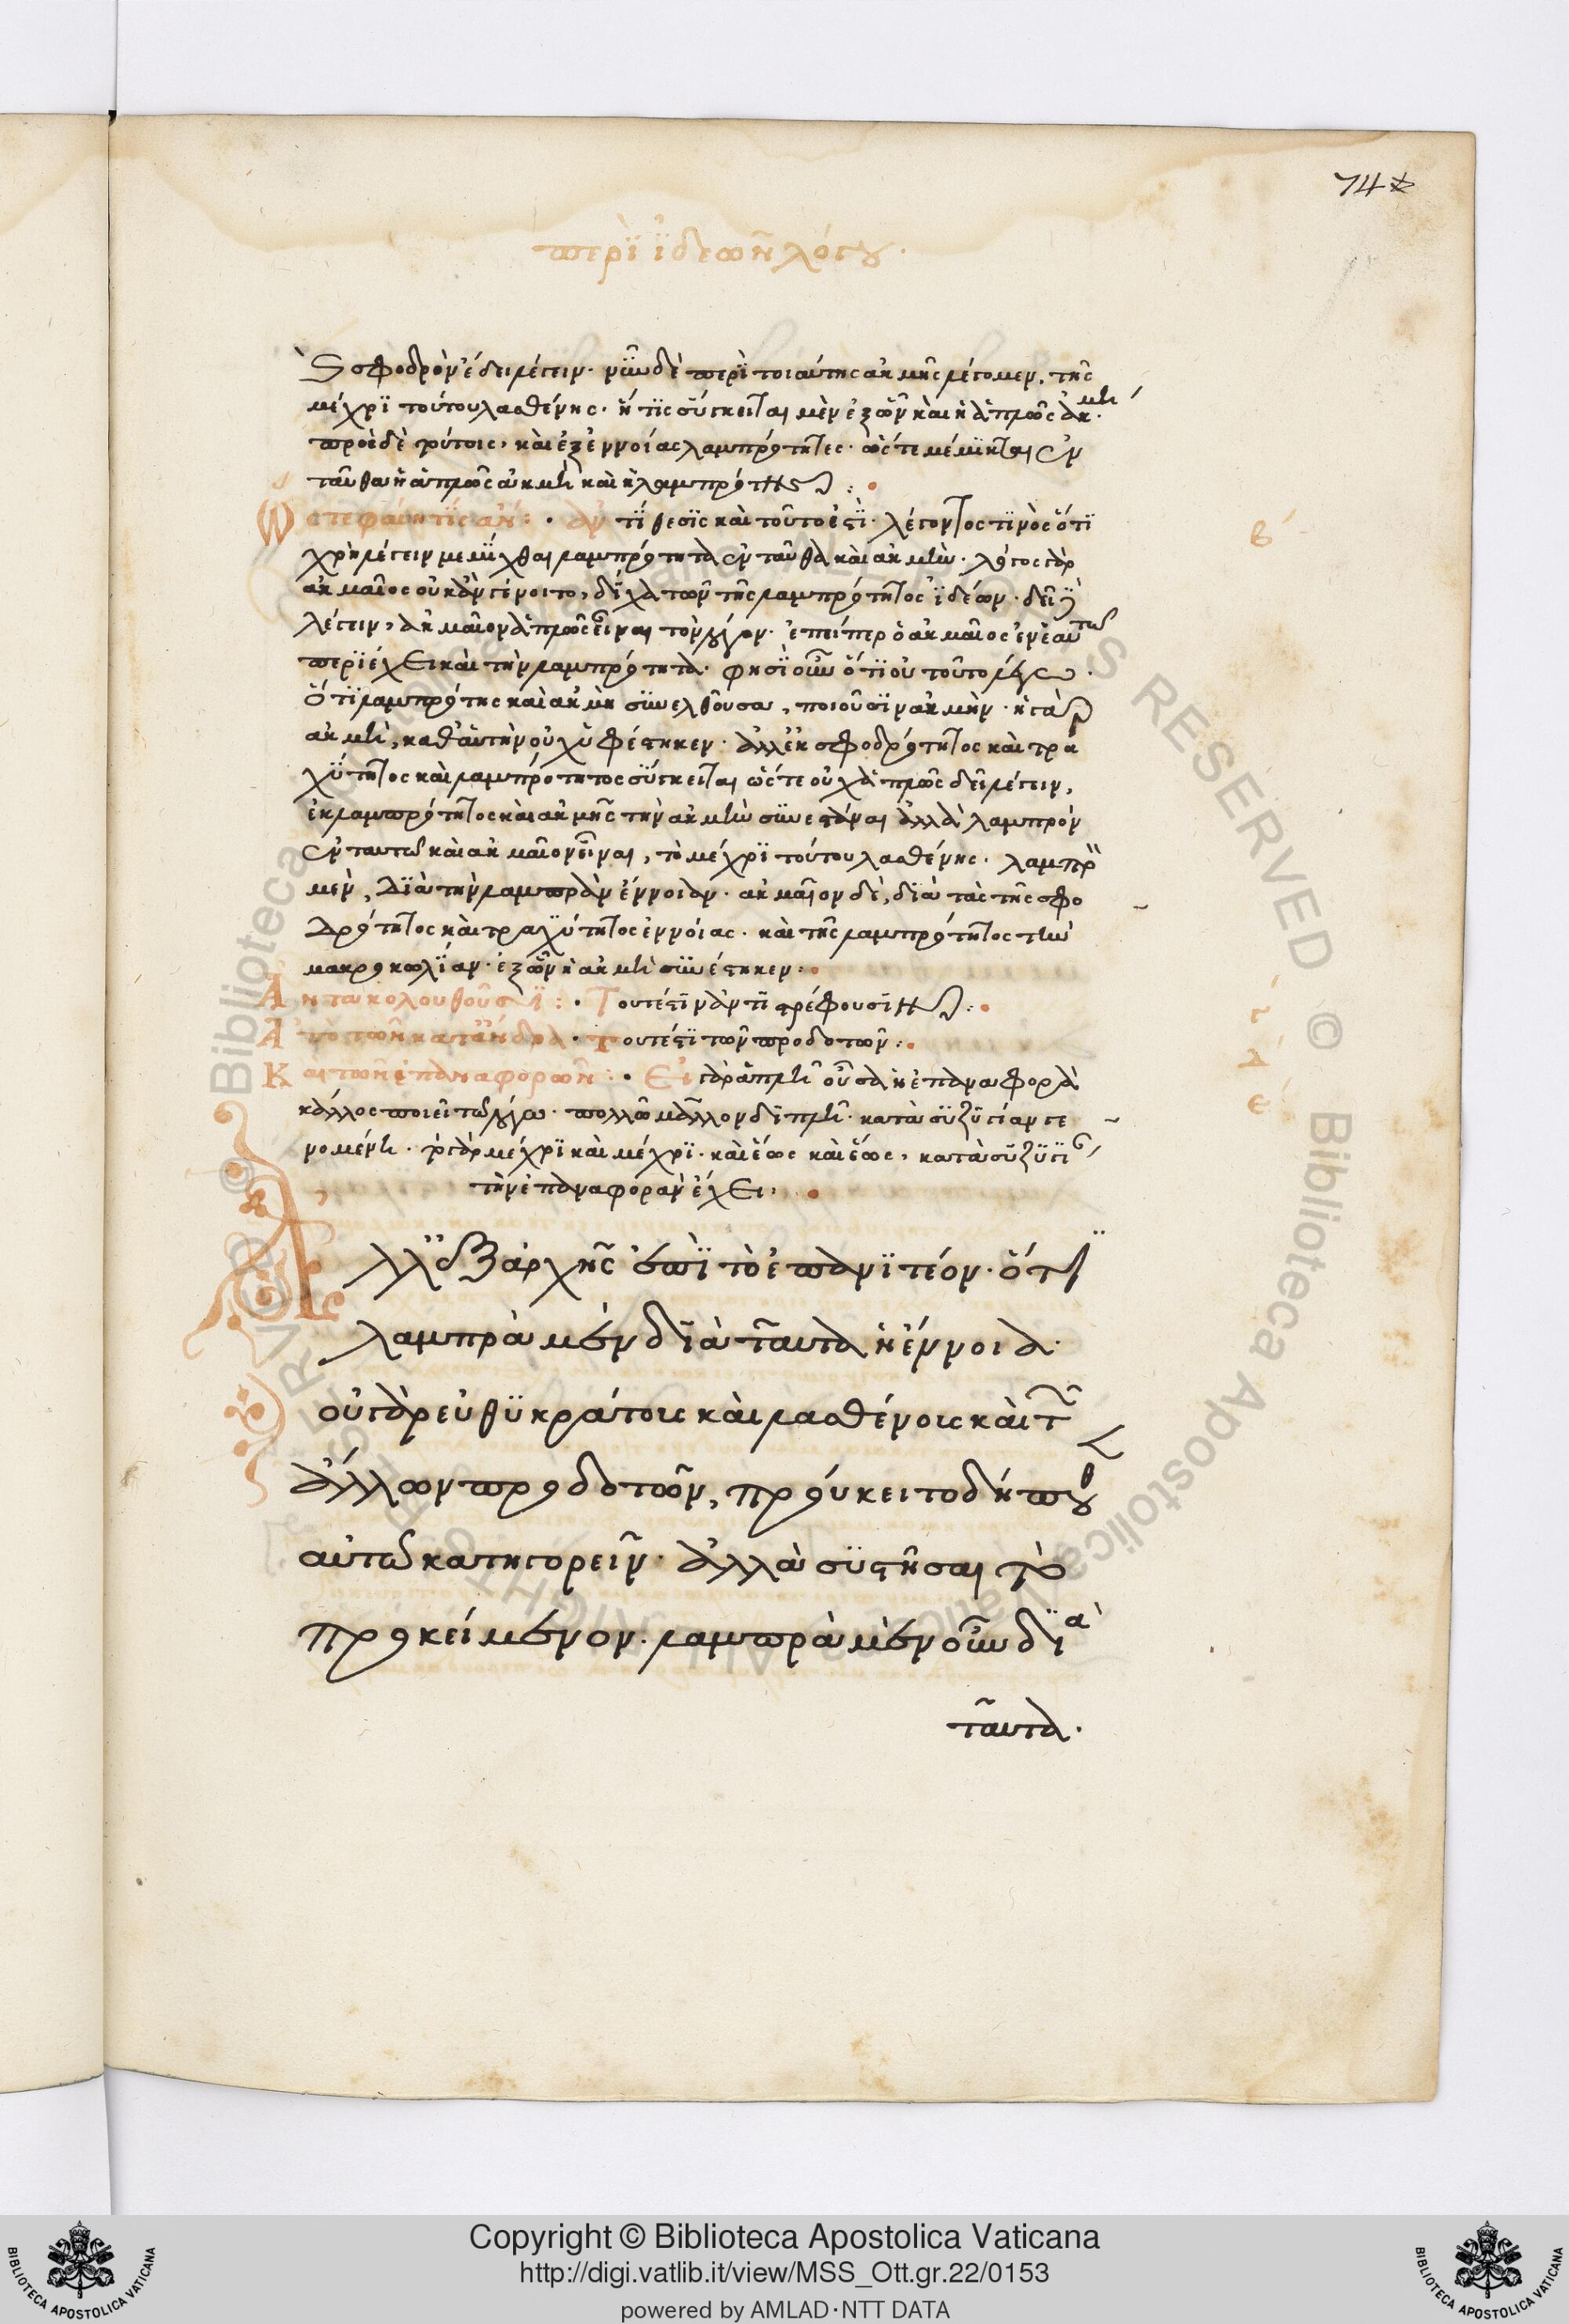 74
περὶ ἰδεῶν λόγου.
σφοδρὸν ἔδει λέγειν. νῦν δὲ περὶ τοιαύτης ἀκμῆς λέγομεν. τῆς
μέχρι τούτου λασθένης. ἥτις σύγκειται μὲν ἐξ ὧν καὶ ἡ ἁπλῶς ἀκμὴ
καὶ ἐξ ἐννοίας λαμπρότητος. ὥστε μέμικται ἐν
ταῦθα ἡ ἁπλῶς ἀκμὴ καὶ ἡ λαμπρότης
Ὥστε φαίη τις ἄν: ἀντίθεσις καὶ τοῦτό ἐστι. λέγοντος τινὸς ὅτι
χρὴ λέγειν μεμίχθαι λαμπρότητα ἐνταῦθα καὶ ἀκμήν. λόγος γὰρ
ἀκμαῖος οὐκ ἂν γένοιτο, δίχα τῶν τῆς λαμπρότητος ἰδεῶν. δεῖ
λέγειν, ἀκμαῖον ἁπλῶς εἶναι τὸν λόγον. ἐπείπερ ὁ ἀκμαῖος ἐν ἑαυτῷ
περιέχει καὶ τὴν λαμπρότητα. φησὶ οὖν ὅτι οὐ τοῦτο λέγω.
ὅτι λαμπρότης καὶ ἀκμὴ συνελθοῦσα, ποιοῦσιν ἀκμήν. ἡ γὰρ
ἀκμὴ, καθ' αὑτὴν οὐχ ὑφέστηκεν. ἀλλ' ἐκ σφοδρότητος καὶ τρα
χύτητος καὶ λαμπρότητος σύγκειται ὥστε οὐχ ἁπλῶς δεῖ λέγειν,
ἐκ λαμπρότητος καὶ ἀκμῆς τὴν ἀκμὴν συνεστάναι ἀλλὰ λαμπρὸν
ἐν ταυτῷ καὶ ἀκμαῖον εἶναι, τὸ μέχρι τούτου λασθένης. λαμπρὸν
μὲν, διὰ τὴν λαμπρὰν ἔννοιαν. ἀκμαῖον δὲ, διὰ τὰς τῆς σφο
δρότητος καὶ τραχύτητος ἐννοίας. καὶ τῆς λαμπρότητος τὴν
μακροκωλίαν. ἐξ ὧν ἡ ἀκμὴ συνέστηκεν.
Ἀντακολουθοῦσι: Τουτέστιν ἀντιστρέφουσι
Ἀπὸ τῶν κατ' ἄνδρα. Τουτέστι τῶν προδοτῶν:
Καὶ τῶν ἐπαναφορῶν: Εἰ γὰρ ἁπλῆ οὖσα ἡ ἐπαναφορὰ
κάλλος ποιεῖ τῷ λόγῳ. πολλῷ μᾶλλον διπλῆ. κατὰ συζυγίαν γε
νομένη. τὸ γὰρ μέχρι καὶ μέχρι. καὶ ἕως καὶ ἕως, κατὰ συζυγίαν
τὴν ἐπαναφορὰν ἔχει.
Ἀλλ' ἐξ ἀρχῆς ἐπὶ τὸ ἐπανιτέον. ὅτι
λαμπρὰ μὲν διὰ ταῦτα ἡ ἔννοια.
οὐ γὰρ εὐθυκράτους καὶ λασθένους καὶ τῶν
ἄλλων προδοτῶν, προύκειτο δήπου
αὐτῷ κατηγορεῖν. ἀλλὰ συστῆσαι τὸ
προκείμενον. λαμπρὰ μὲν οὖν διὰ
ταῦτα.
β
γ
δ
ε
© Biblioteca Apostolica Vaticana ALL RIGHTS RESERVED
Copyright © Biblioteca Apostolica Vaticana
http://digi.vatlib.it/view/MSS_Ott.gr.22/0153
powered by AMLAD·NTT DATA
BIBLIOTECA APOSTOLICA VATICANA
BIBLIOTECA APOSTOLICA VATICANA